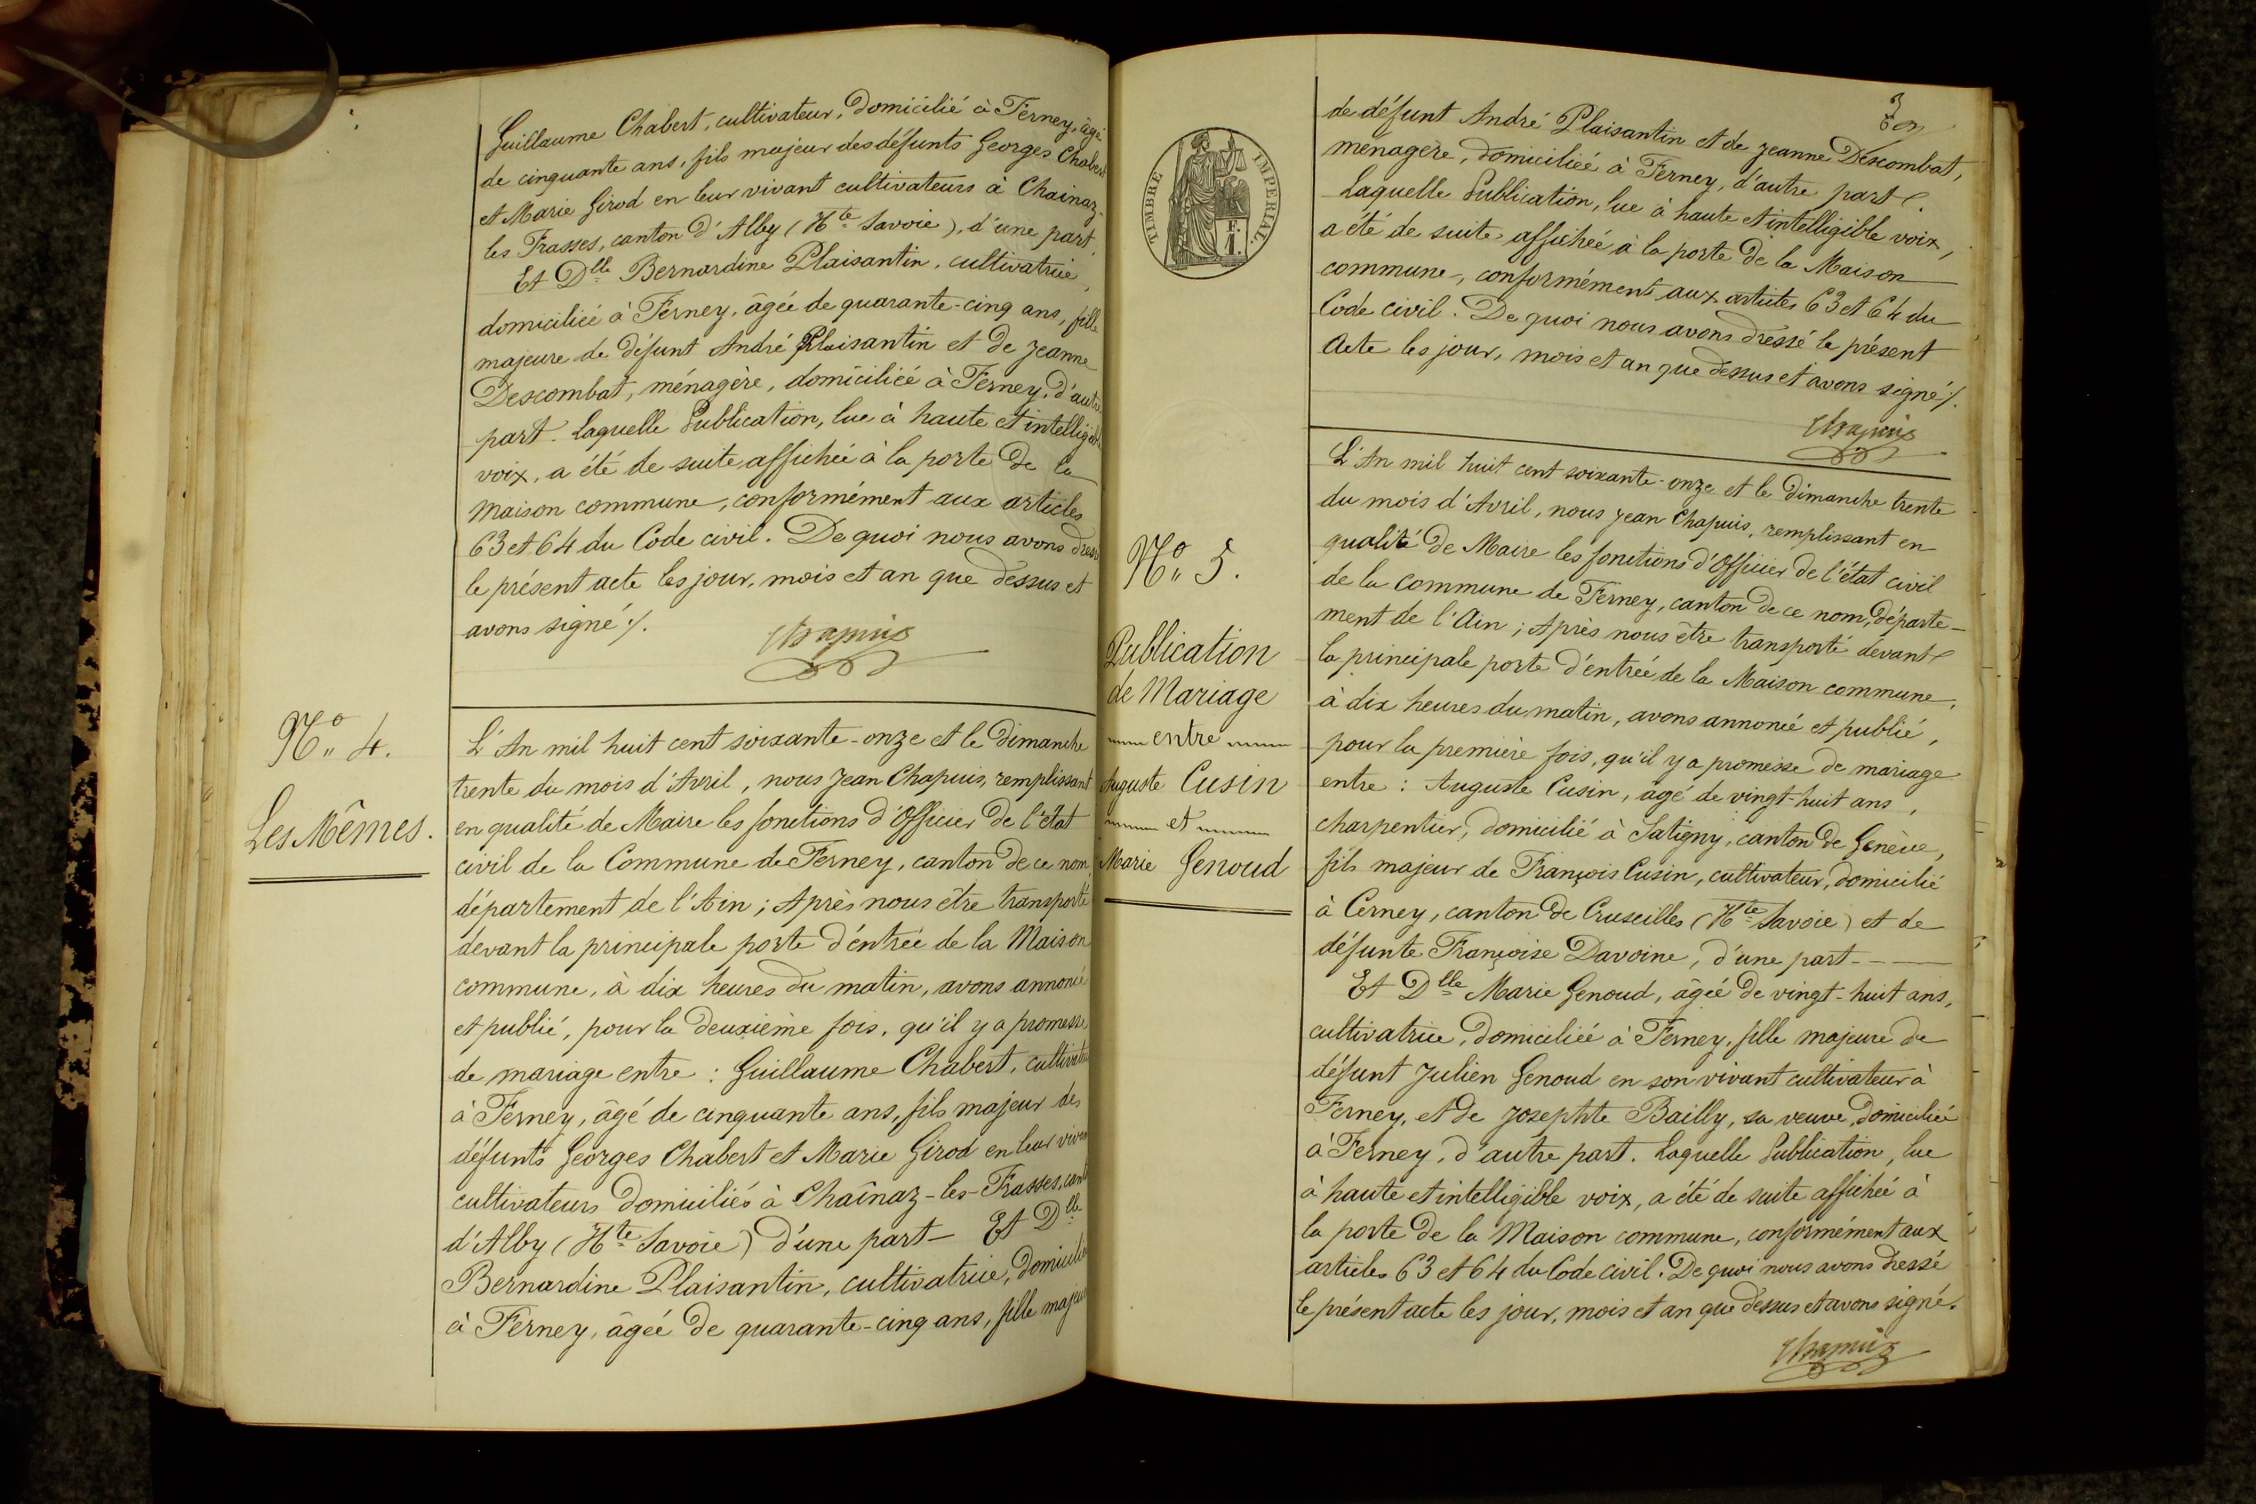 Guillaume Chabert, cultivateur, domicilié à Ferney, âgé
de cinquante ans, fils majeur des défunts Georges Chabert
et Marie Girod en leur vivant cultivateurs à Chainaz-
les Frasses, canton d'Alby (Hte Savoie), d'une part,
Et Dlle Bernardine Plaisantin, cultivatrice,
domiciliée à Ferney, âgée de quarante-cinq ans, fille
majeure de défunt André Plaisantin et de Jeanne
Descombat, ménagère, domiciliée à Ferney, d'autre
part. Laquelle Publication, lue à haute et intelligible
voix, a été de suite affichée à la porte de la
Maison commune, conformément aux articles
63 et 64 du Code civil. De quoi nous avons dressé
le présent acte les jour, mois et an que dessus et
avons signé ./.
Chapuis
No 4.
Les Mêmes.
L'An mil huit cent soixante-onze et le dimanche
trente du mois d'Avril, nous Jean Chapuis, remplissant
en qualité de Maire les fonctions d'Officier de l'état
civil de la Commune de Ferney, canton de ce nom,
département de l'Ain ; Après nous être transporté
devant la principale porte d'entrée de la Maison
commune, à dix heures du matin, avons annoncé
et publié, pour la deuxième fois, qu'il y a promesse
de mariage entre : Guillaume Chabert, cultivateur
à Ferney, âgé de cinquante ans, fils majeur des
défunts Georges Chabert et Marie Girod en leur vivant
cultivateurs domiciliés à Chaînaz-les-Frasses, canton
d'Alby (Hte Savoie) d'une part - Et Dlle
Bernardine Plaisantin, cultivatrice, domiciliée
à Ferney, âgée de quarante-cinq ans, fille majeure
TIMBRE IMPERIAL.
F.
1.
3
de défunt André Plaisantin et de Jeanne Descombat,
ménagère, domiciliée à Ferney, d'autre part.
Laquelle Publication, lue à haute et intelligible voix,
a été de suite affichée à la porte de la Maison
commune, conformément aux articles 63 et 64 du
Code civil. De quoi nous avons dressé le présent
Acte les jour, mois et an que dessus et avons signé ./.
Chapuis
No 5.
Publication
de Mariage
entre
Auguste Cusin
et
Marie Genoud
L'An mil huit cent soixante-onze et le dimanche trente
du mois d'Avril, nous Jean Chapuis, remplissant en
qualité de Maire les fonctions d'Officier de l'état civil
de la commune de Ferney, canton de ce nom, départe-
ment de l'Ain ; Après nous être transporté devant
la principale porte d'entrée de la Maison commune,
à dix heures du matin, avons annoncé et publié,
pour la première fois, qu'il y a promesse de mariage
entre : Auguste Cusin, âgé de vingt-huit ans,
charpentier, domicilié à Satigny, canton de Genève,
fils majeur de François Cusin, cultivateur, domicilié
à Cerney, canton de Cruseilles (Hte Savoie) et de
défunte Françoise Davoine, d'une part - - -
Et Dlle Marie Genoud, âgée de vingt-huit ans,
cultivatrice, domiciliée à Ferney, fille majeure de
défunt Julien Genoud en son vivant cultivateur à
Ferney, et de Josephte Bailly, sa veuve, domiciliée
à Ferney, d'autre part. Laquelle Publication, lue
à haute et intelligible voix, a été de suite affichée à
la porte de la Maison commune, conformément aux
articles 63 et 64 du Code civil. De quoi nous avons dressé
le présent acte les jour, mois et an que dessus et avons signé.
Chapuis